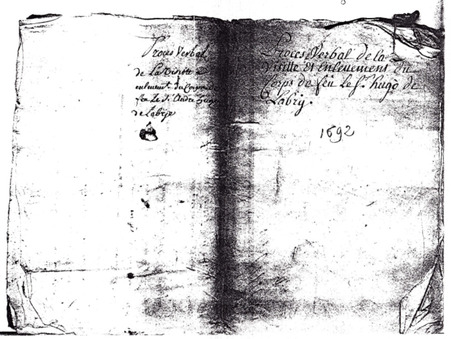 Proces Verbal
de La visitte &
enlevement du Corps de
feu Le Sr. André hugo
de Labrye
Proces Verbal de la
visitte et enlevemens du
Corps de feu Le Sr. hugo de
Labry.
1692